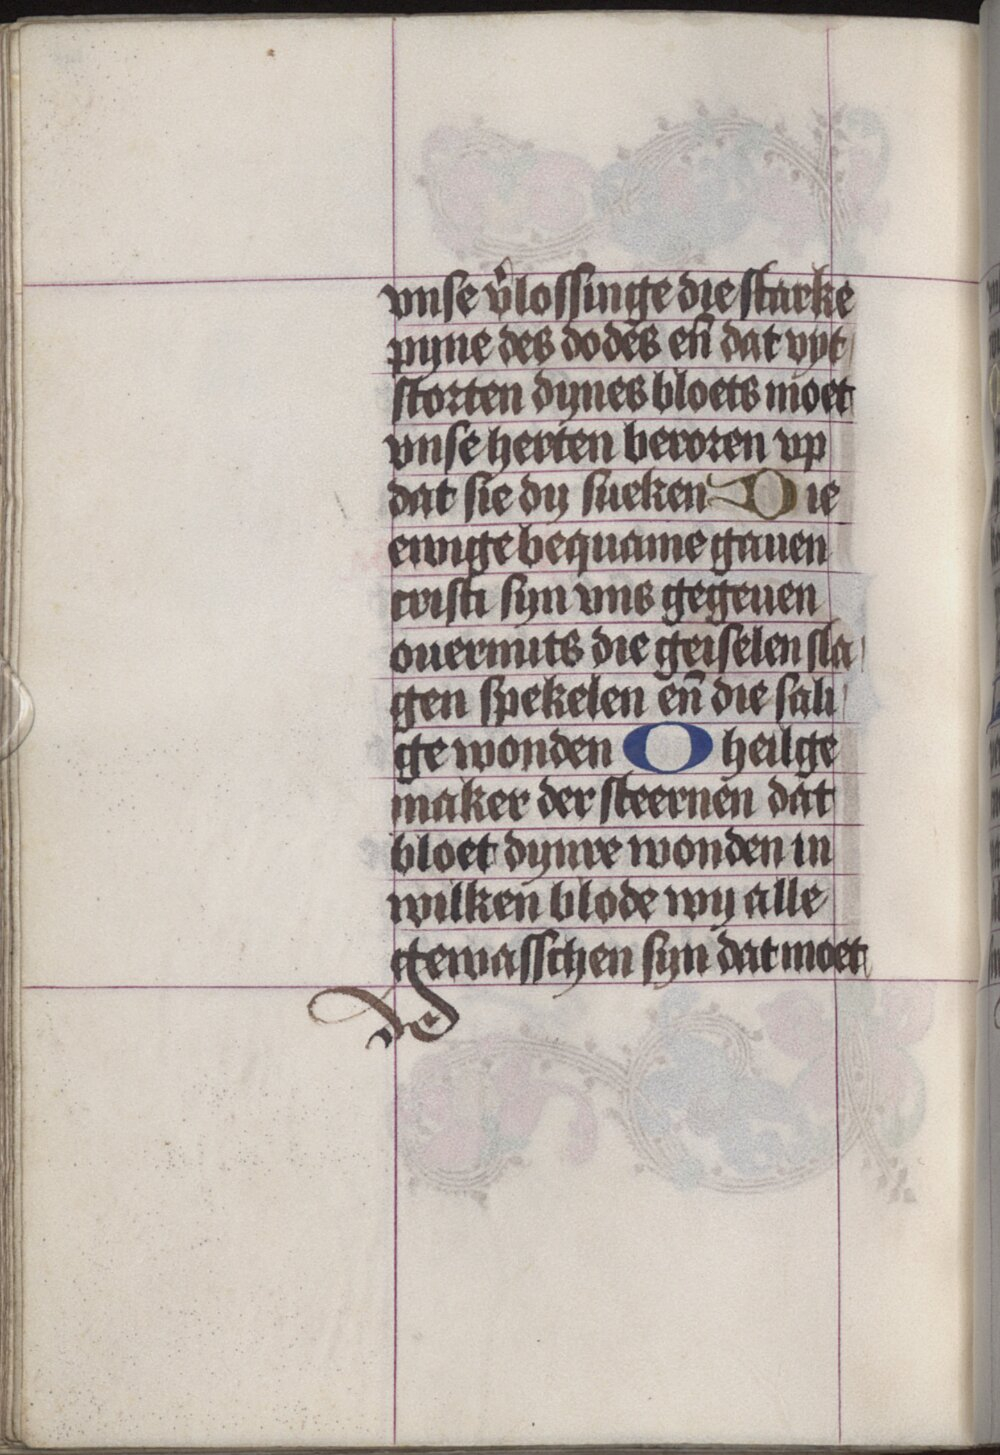 vnse v̕lossinge die starke
pyne des dodes en̄ dat vyt
storten dynes bloets moet
vnse herten beroren vp
dat sie dy sueken Die
ewige bequame gauen
cristi syn vns gegeuen
ouermits die geiselen sla
gen spekelen en̄ die sali
ge wonden O heilge
maker der steernen dat
bloet dynre wonden in
wilken blode wy alle
gewasschen syn dat moet